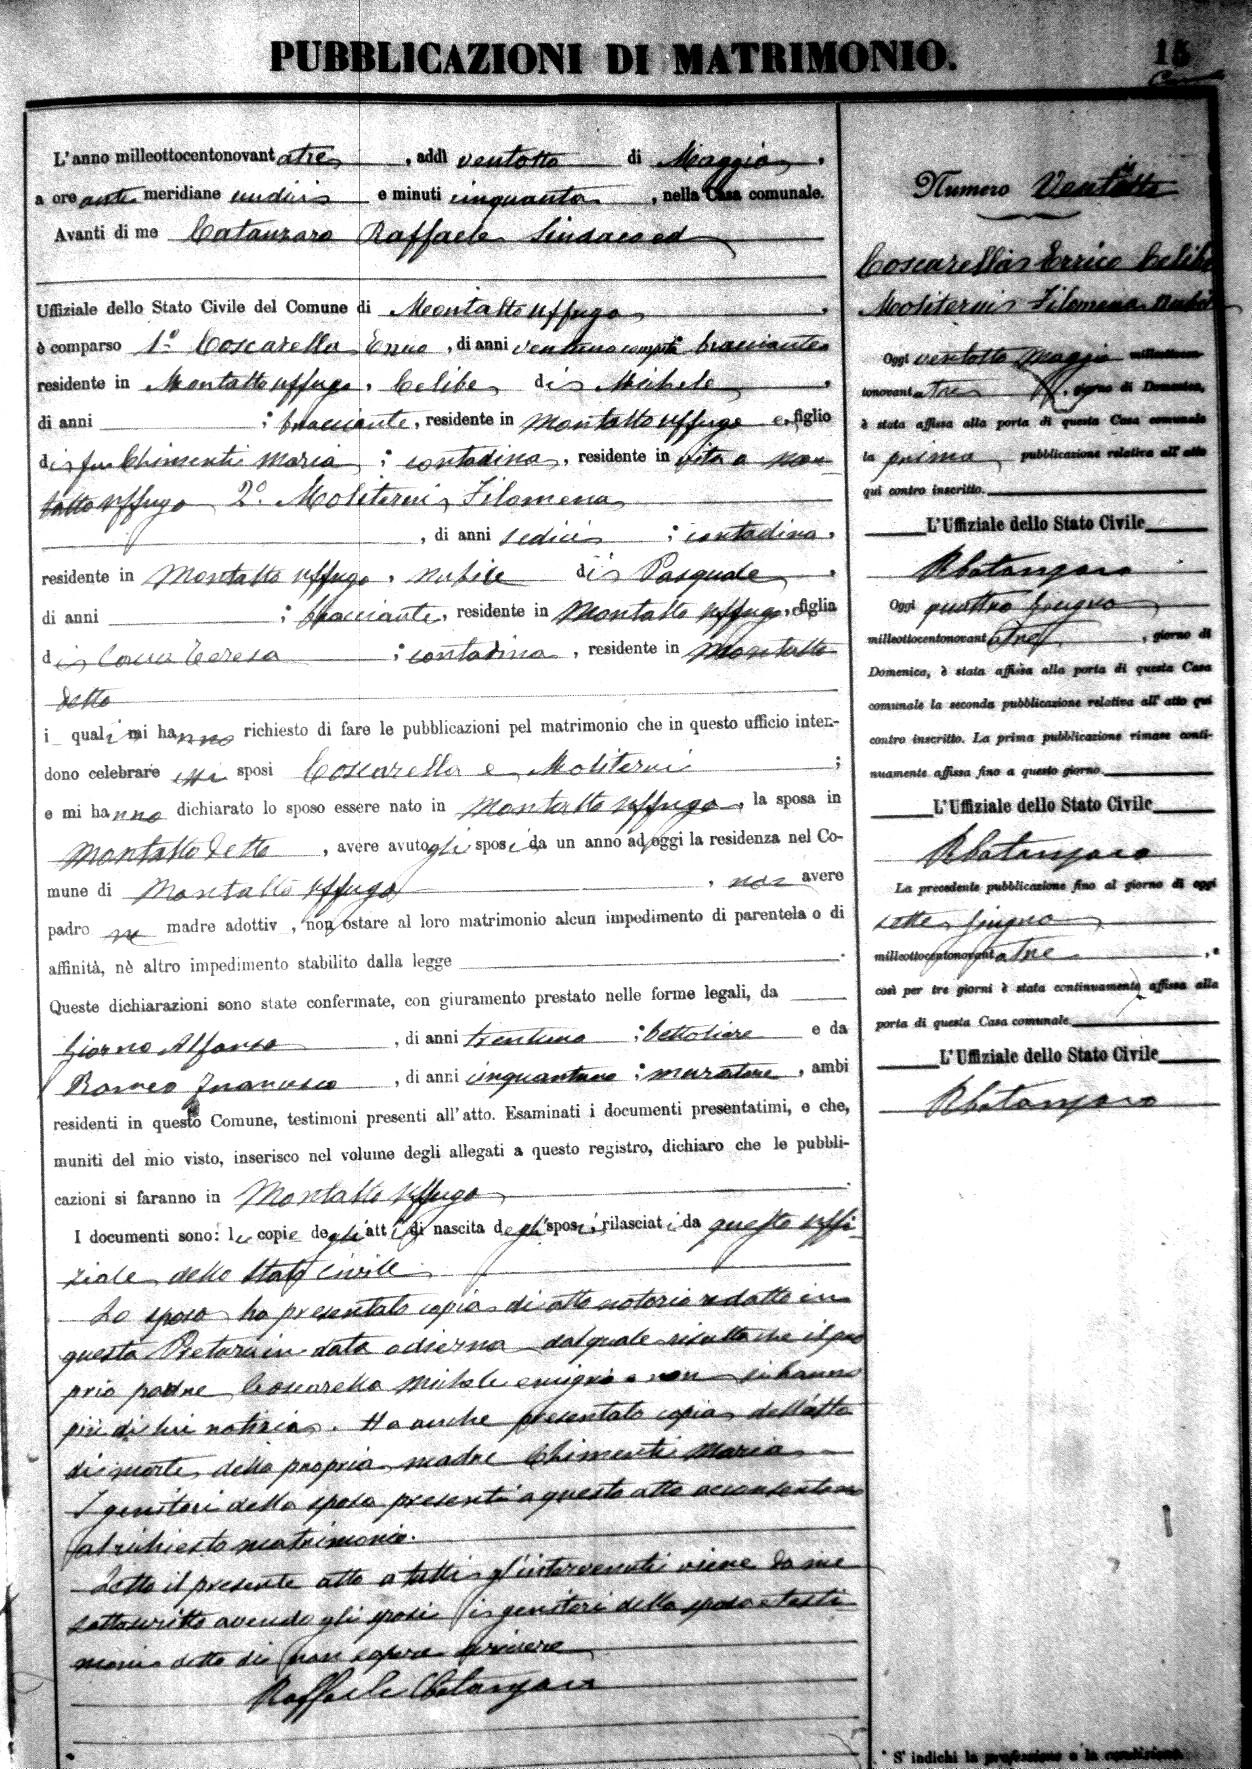 PUBBLICAZIONI DI MATRIMONIO.
15
L'anno milleottocentonovantatre, addì ventotto di Maggio,
a ore antimeridiane undici e minuti cinquanta, nella Casa comunale.
Avanti di me Catanzaro Raffaele Sindaco ed
Uffiziale dello Stato Civile del Comune di Montalto Uffugo
è comparso 1º Coscarella Errico, di anni ventuno compiti bracciante
residente in Montalto Uffugo, Celibe di Michele,
di anni ; bracciante, residente in Montalto Uffugo e, figlio
di fu Chimenti Maria; contadina, residente in vita a Mon-
talto Uffugo 2º Moliterni Filomena
, di anni sedici; contadina,
residente in Montalto Uffugo, nubile di Pasquale,
di anni ; bracciante, residente in Montalto Uffugo, e figlia
di Teresa; contadina, residente in Montalto
detto
i quali mi hanno richiesto di fare le pubblicazioni pel matrimonio che in questo ufficio inten-
dono celebrare essi sposi Coscarella e Moliterni;
e mi hanno dichiarato lo sposo essere nato in Montalto Uffugo, la sposa in
Montalto detto, avere avuto gli sposi da un anno ad oggi la residenza nel Co-
mune di Montalto Uffugo, non avere
padre ne madre adottiv, non ostare al loro matrimonio alcun impedimento di parentela o di
affinità, nè altro impedimento stabilito dalla legge.
Queste dichiarazioni sono state confermate, con giuramento prestato nelle forme legali, da
Giorno Alfonso, di anni trentuno; bettoliere e da
Romeo Francesco, di anni cinquantuno; muratore, ambi
residenti in questo Comune, testimoni presenti all'atto. Esaminati i documenti presentatimi, e che,
muniti del mio visto, inserisco nel volume degli allegati a questo registro, dichiaro che le pubbli-
cazioni si faranno in Montalto Uffugo.
I documenti sono: le copie degli atti di nascita degli sposi, rilasciati da questo Uffi-
ziale dello Stato Civile
Lo sposo ha presentato copia di atto notorio redatto in
questa Pretura in data odierna dal quale risulta che il pro
prio padre Coscarella Michele emigrò e non si hanno
più di lui notizia. Ha anche presentato copia dell'atto
di morte della propria madre Chimenti Maria
I genitori della sposa presenti a questo atto acconsentono
al richiesto matrimonio.
Letto il presente atto a tutti gl'intervenuti viene da me
sottoscritto avendo gli sposi i genitori della sposa e testi
moni detto di non sapere scrivere
Raffaele Catanzaro
Numero Ventotto
Coscarella Errico Celibe
Moliterni Filomena nubile
Oggi ventotto Maggio milleottocen-
tonovantatre, giorno di Domenica,
è stata affissa alla porta di questa Casa comunale
la prima pubblicazione relativa all'atto
qui contro inscritto.
L'Uffiziale dello Stato Civile
RCatanzaro
Oggi quattro Giugno
milleottocentonovantatre, giorno di
Domenica, è stata affissa alla porta di questa Casa
comunale la seconda pubblicazione relativa all'atto qui
contro inscritto. La prima pubblicazione rimase conti-
nuamente affissa fino a questo giorno.
L'Uffiziale dello Stato Civile
RCatanzaro
La precedente pubblicazione fino al giorno di oggi
sette Giugno
milleottocentonovantatre, e
così per tre giorni è stata continuamente affissa alla
porta di questa Casa comunale
L'Uffiziale dello Stato Civile
RCatanzaro
* S'indichi la professione o la condizione.